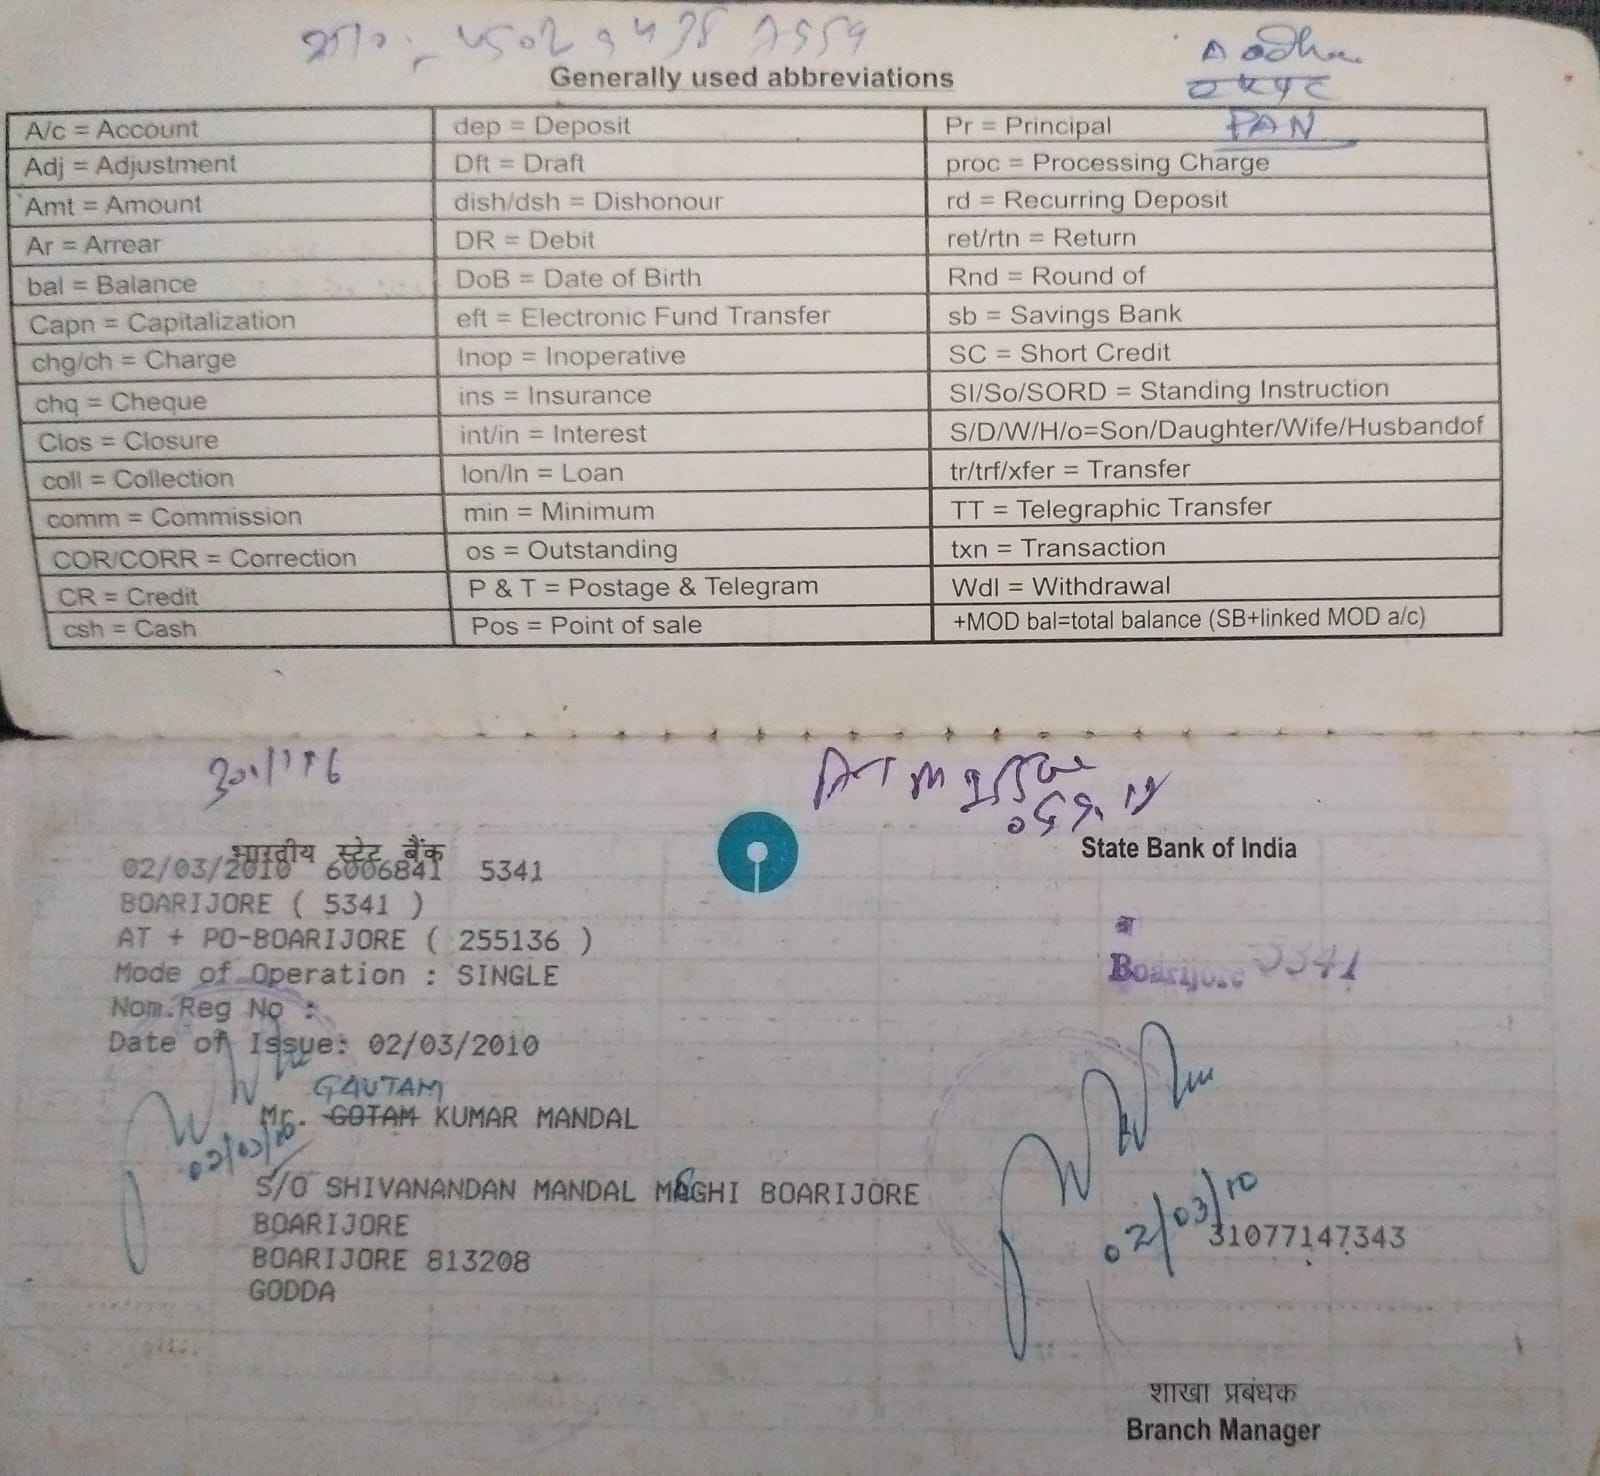 Aadhar
PAN
Generally used abbreviations
A/c = Account
dep = Deposit
Pr = Principal
Adj = Adjustment
Dft = Draft
proc = Processing Charge
Amt = Amount
dish/dsh = Dishonour
rd = Recurring Deposit
Ar = Arrear
DR = Debit
ret/rtn = Return
bal = Balance
DoB = Date of Birth
Rnd = Round of
Capn = Capitalization
eft = Electronic Fund Transfer
sb = Savings Bank
chg/ch = Charge
Inop = Inoperative
SC = Short Credit
chq = Cheque
ins = Insurance
SI/So/SORD = Standing Instruction
Clos = Closure
int/in = Interest
S/D/W/H/o=Son/Daughter/Wife/Husbandof
coll = Collection
lon/ln = Loan
tr/trf/xfer = Transfer
comm = Commission
min = Minimum
TT = Telegraphic Transfer
COR/CORR = Correction
os = Outstanding
txn = Transaction
CR = Credit
P & T = Postage & Telegram
Wdl = Withdrawal
csh = Cash
Pos = Point of sale
+MOD bal=total balance (SB+linked MOD a/c)
भारतीय स्टेट बैंक
State Bank of India
02/03/2010 6006841 5341
BOARIJORE ( 5341 )
AT + PO-BOARIJORE ( 255136 )
Boarijore 5341
Mode of Operation : SINGLE
Nom.Reg No :
Date of Issue: 02/03/2010
GAUTAM
Mr. GOTAM KUMAR MANDAL
02/03/10
S/O SHIVANANDAN MANDAL MAGHI BOARIJORE
BOARIJORE
02/03/10
31077147343
BOARIJORE 813208
GODDA
शाखा प्रबंधक
Branch Manager